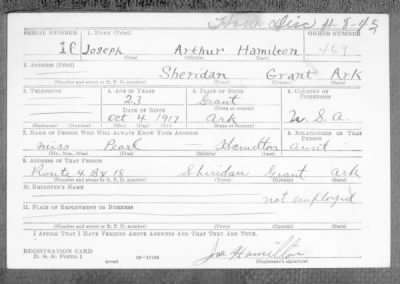 Hon. Disc 11-8-45
SERIAL NUMBER 1. NAME (Print) ORDER NUMBER
18 Joseph Arthur Hamilton 469
(First) (Middle) (Last)
2. ADDRESS (Print)
Sheridan Grant Ark
(Number and street or R. F. D. number) (Town) (County) (State)
3. TELEPHONE 4. AGE IN YEARS 5. PLACE OF BIRTH 6. COUNTRY OF CITIZENSHIP
23 Grant
DATE OF BIRTH (Town or county)
Oct 4 1917 Ark U. S. A.
(Exchange) (Number) (Mo.) (Day) (Yr.) (State or country)
7. NAME OF PERSON WHO WILL ALWAYS KNOW YOUR ADDRESS 8. RELATIONSHIP OF THAT PERSON
Miss Pearl Hamilton Aunt
(Mr., Mrs., Miss) (First) (Middle) (Last)
9. ADDRESS OF THAT PERSON
Route 4 Bx 18 Sheridan Grant Ark
(Number and street or R. F. D. number) (Town) (County) (State)
10. EMPLOYER'S NAME
not employed
11. PLACE OF EMPLOYMENT OR BUSINESS
(Number and street or R. F. D. number) (Town) (County) (State)
I AFFIRM THAT I HAVE VERIFIED ABOVE ANSWERS AND THAT THEY ARE TRUE.
REGISTRATION CARD
D. S. S. FORM 1 (over) 16-17105 Joe Hamilton
(Registrant's signature)